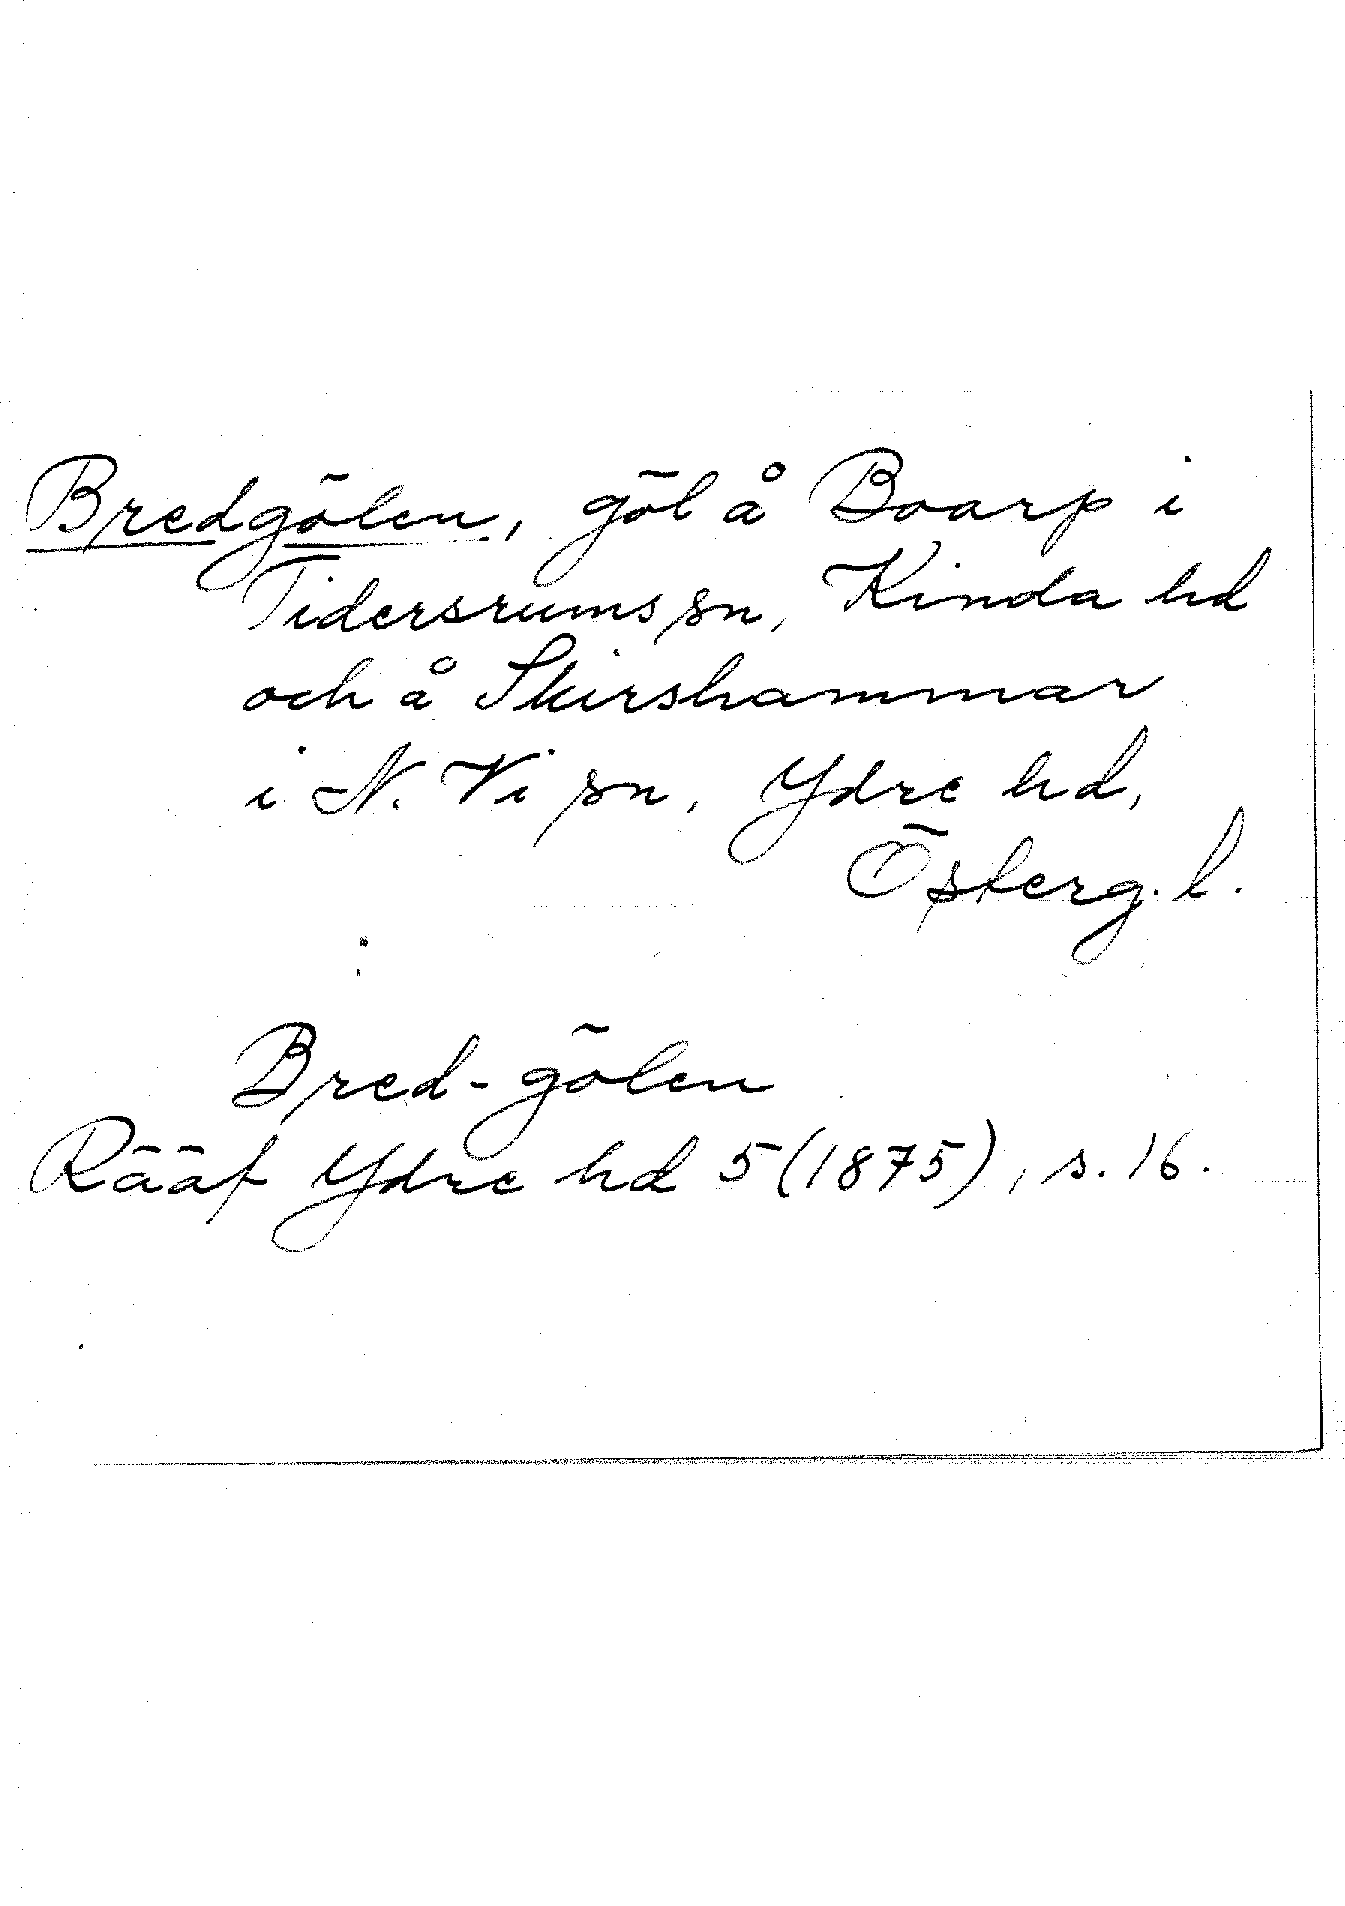 Bredgölen, göl å Boarp i
Tidersrums sn, Kinda hd
och å Skirshammar
i N. Vi sn, Ydre hd,
Österg. l.
Bred-gölen
Rääf Ydre hd 5 (1875), s. 16.